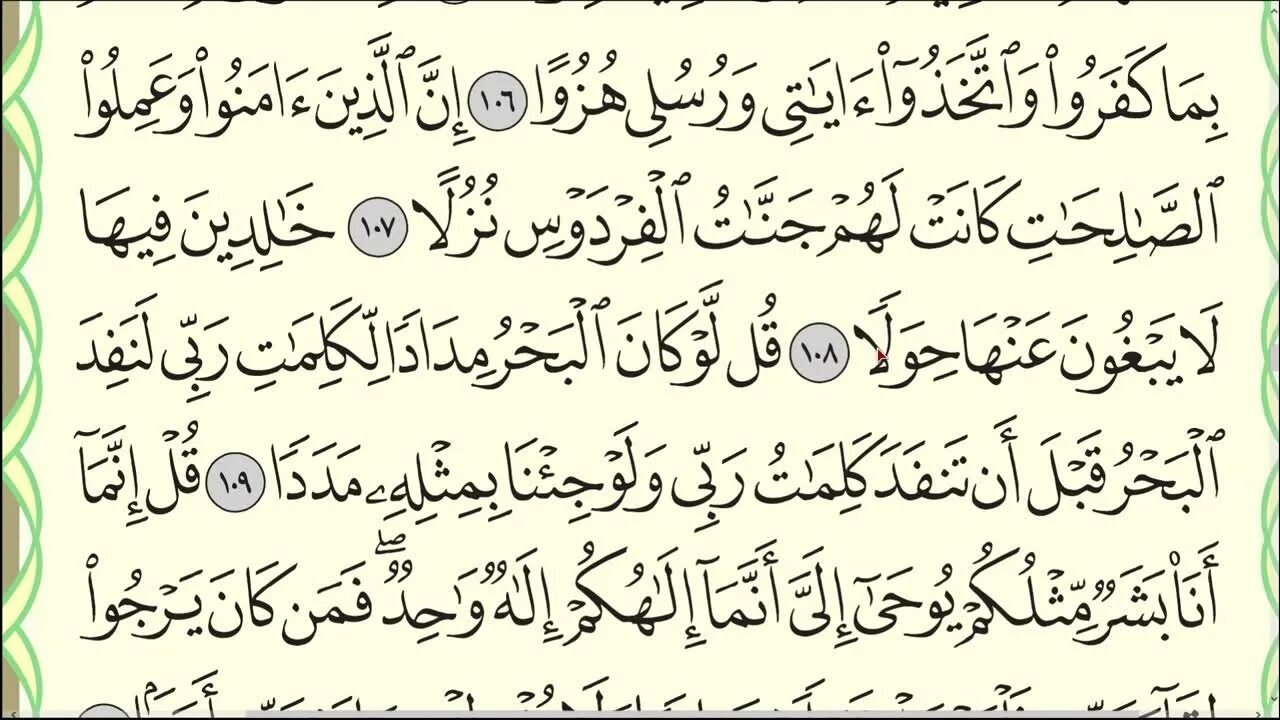 بِمَا كَفَرُوا۟ وَٱتَّخَذُوٓا۟ ءَايَـٰتِى وَرُسُلِى هُزُوًا ١٠٦ إِنَّ ٱلَّذِينَ ءَامَنُوا۟ وَعَمِلُوا۟
ٱلصَّـٰلِحَـٰتِ كَانَتْ لَهُمْ جَنَّـٰتُ ٱلْفِرْدَوْسِ نُزُلًا ١٠٧ خَـٰلِدِينَ فِيهَا
لَا يَبْغُونَ عَنْهَا حِوَلًا ١٠٨ قُل لَّوْ كَانَ ٱلْبَحْرُ مِدَادًا لِّكَلِمَـٰتِ رَبِّى لَنَفِدَ
ٱلْبَحْرُ قَبْلَ أَن تَنفَدَ كَلِمَـٰتُ رَبِّى وَلَوْ جِئْنَا بِمِثْلِهِۦ مَدَدًا ١٠٩ قُلْ إِنَّمَآ
أَنَا۠ بَشَرٌ مِّثْلُكُمْ يُوحَىٰٓ إِلَىَّ أَنَّمَآ إِلَـٰهُكُمْ إِلَـٰهٌ وَٰحِدٌ ۖ فَمَن كَانَ يَرْجُوا۟